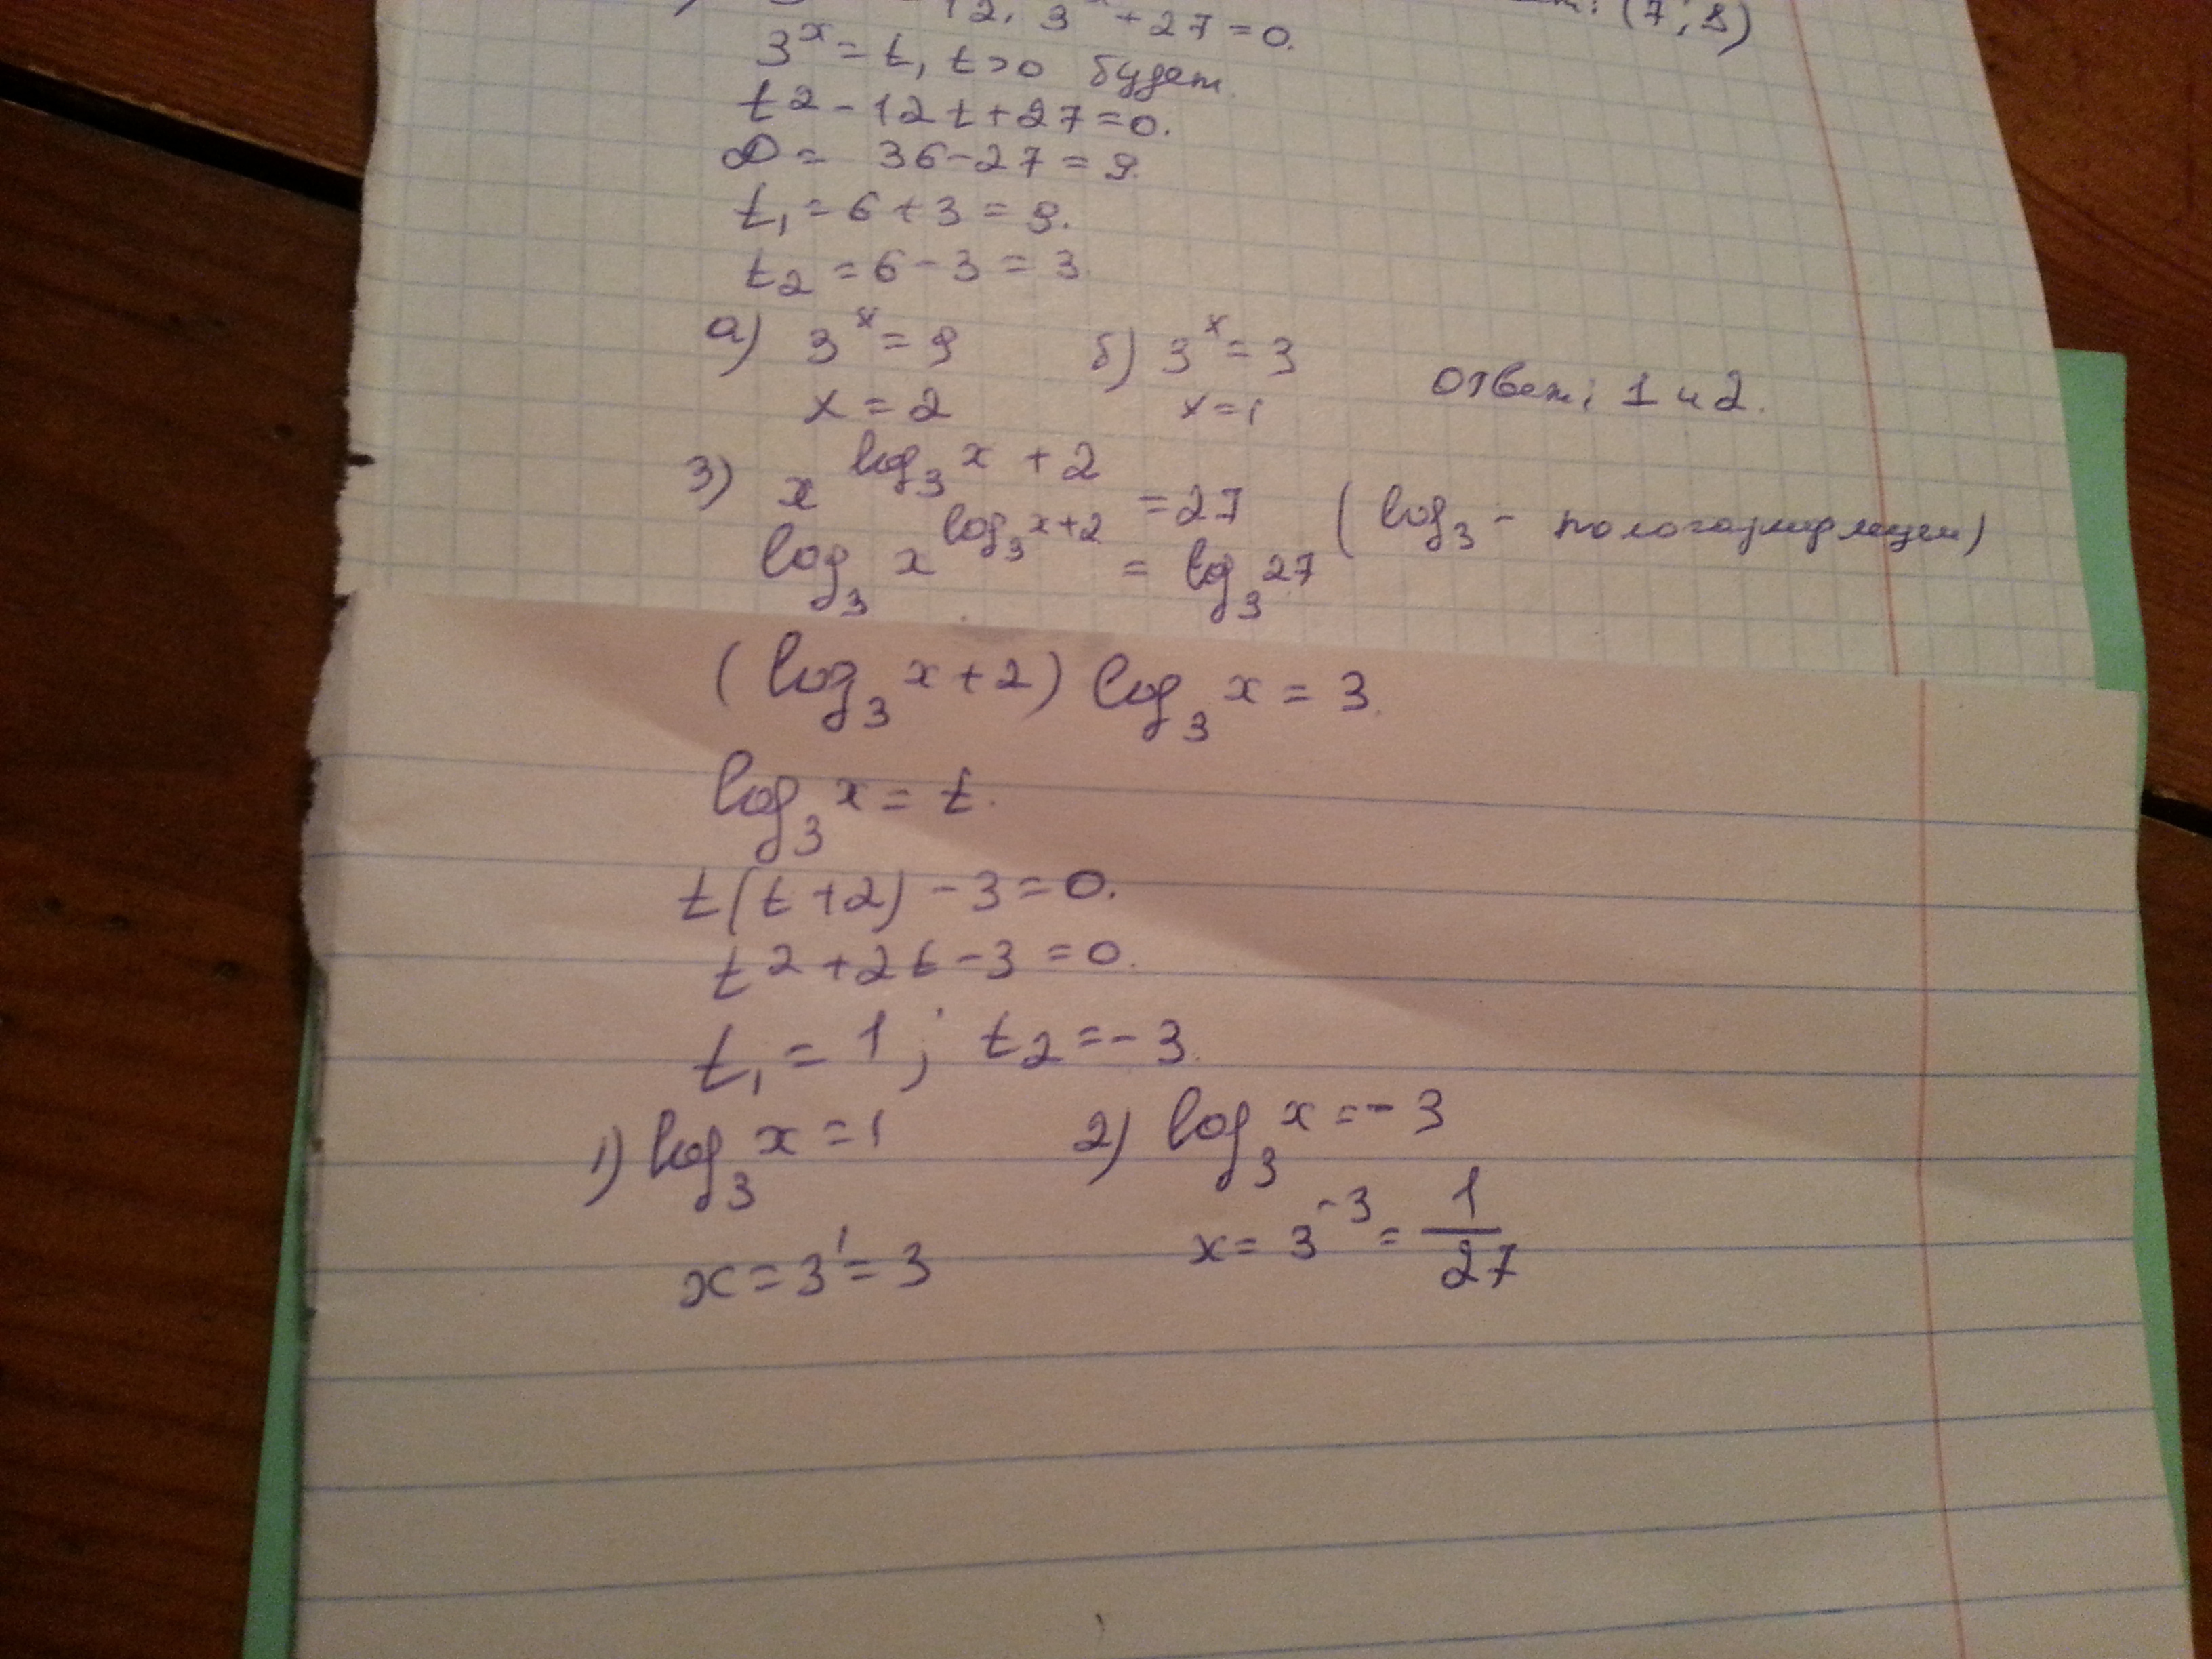 12. 3ˣ + 27 = 0. : (7; 8)
3ˣ = t, t > 0 будет.
t² - 12t + 27 = 0.
D = 36 - 27 = 9.
t₁ = 6 + 3 = 9.
t₂ = 6 - 3 = 3.
а) 3ˣ = 9 б) 3ˣ = 3
x = 2 x = 1 Ответ: 1 и 2.
3) x^(log₃ x + 2) = 27 (log₃ -
log₃ x^(log₃ x + 2) = log₃ 27
(log₃ x + 2) log₃ x = 3.
log₃ x = t.
t(t + 2) - 3 = 0.
t² + 2t - 3 = 0.
t₁ = 1; t₂ = - 3.
1) log₃ x = 1 2) log₃ x = - 3
x = 3¹ = 3 x = 3⁻³ = 1/27